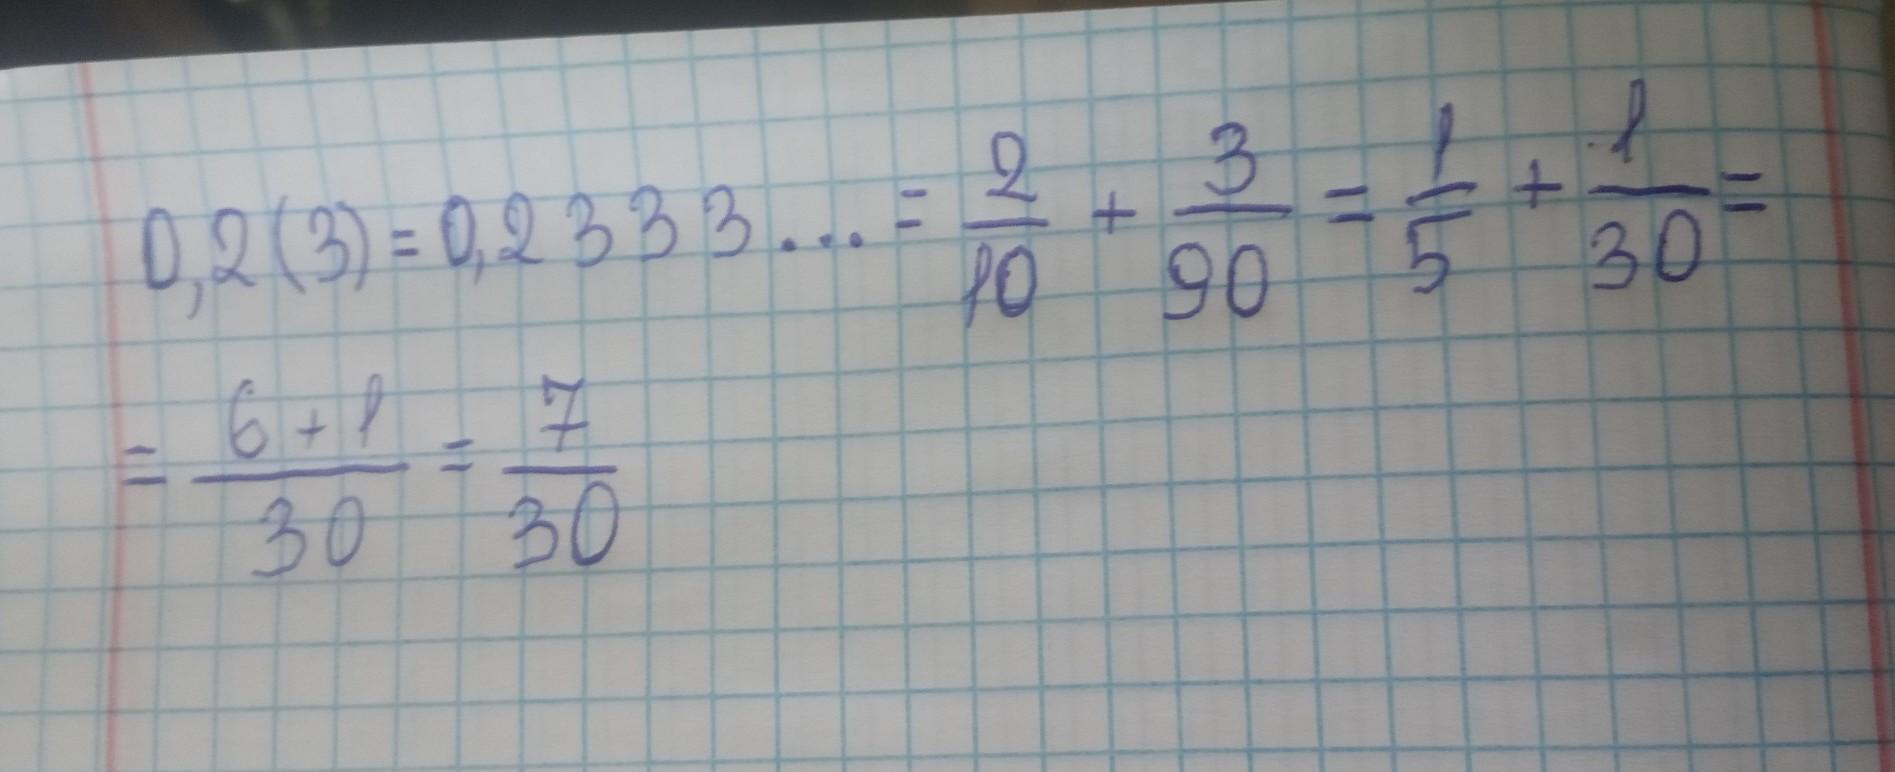 0,2(3)=0,2333...= 2/10 + 3/90 = 1/5 + 1/30 =
= 6+1/30 = 7/30